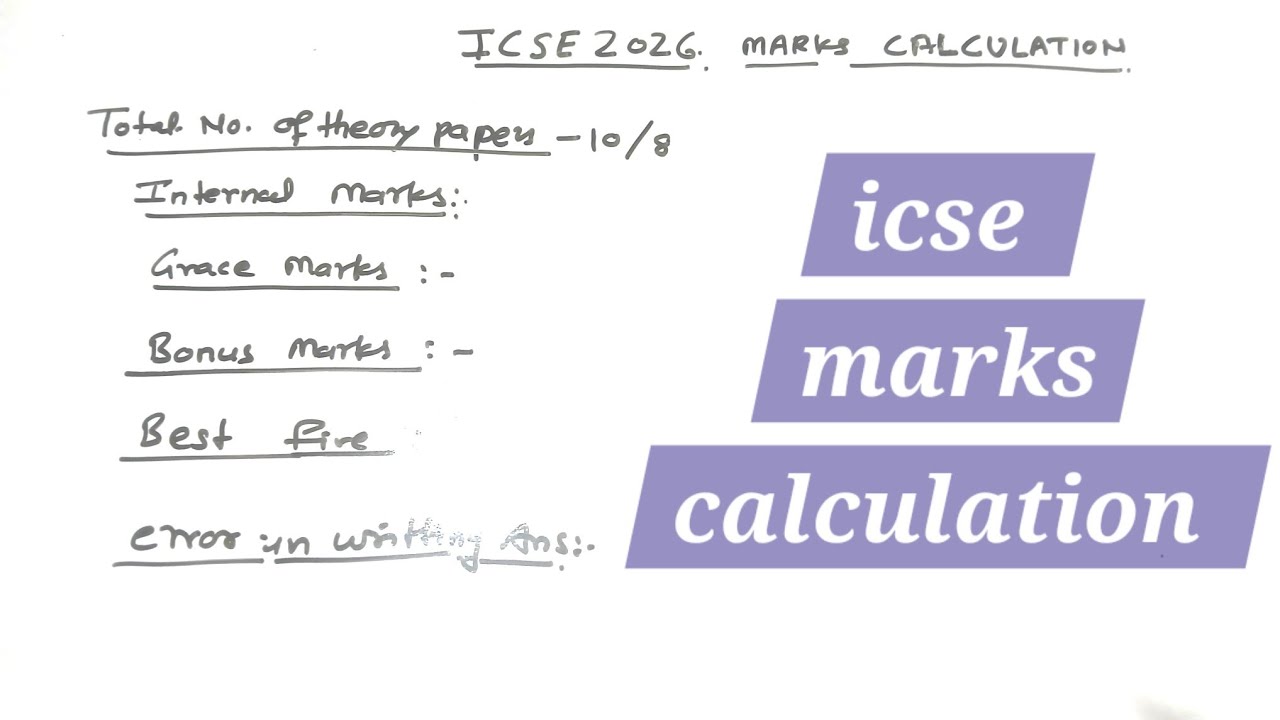 ICSE 2026. MARKS CALCULATION.
Total. No. of theory papers - 10/8
Internal Marks:.
Grace Marks :-
Bonus Marks :-
Best five
error in writting Ans:.
icse
marks
calculation